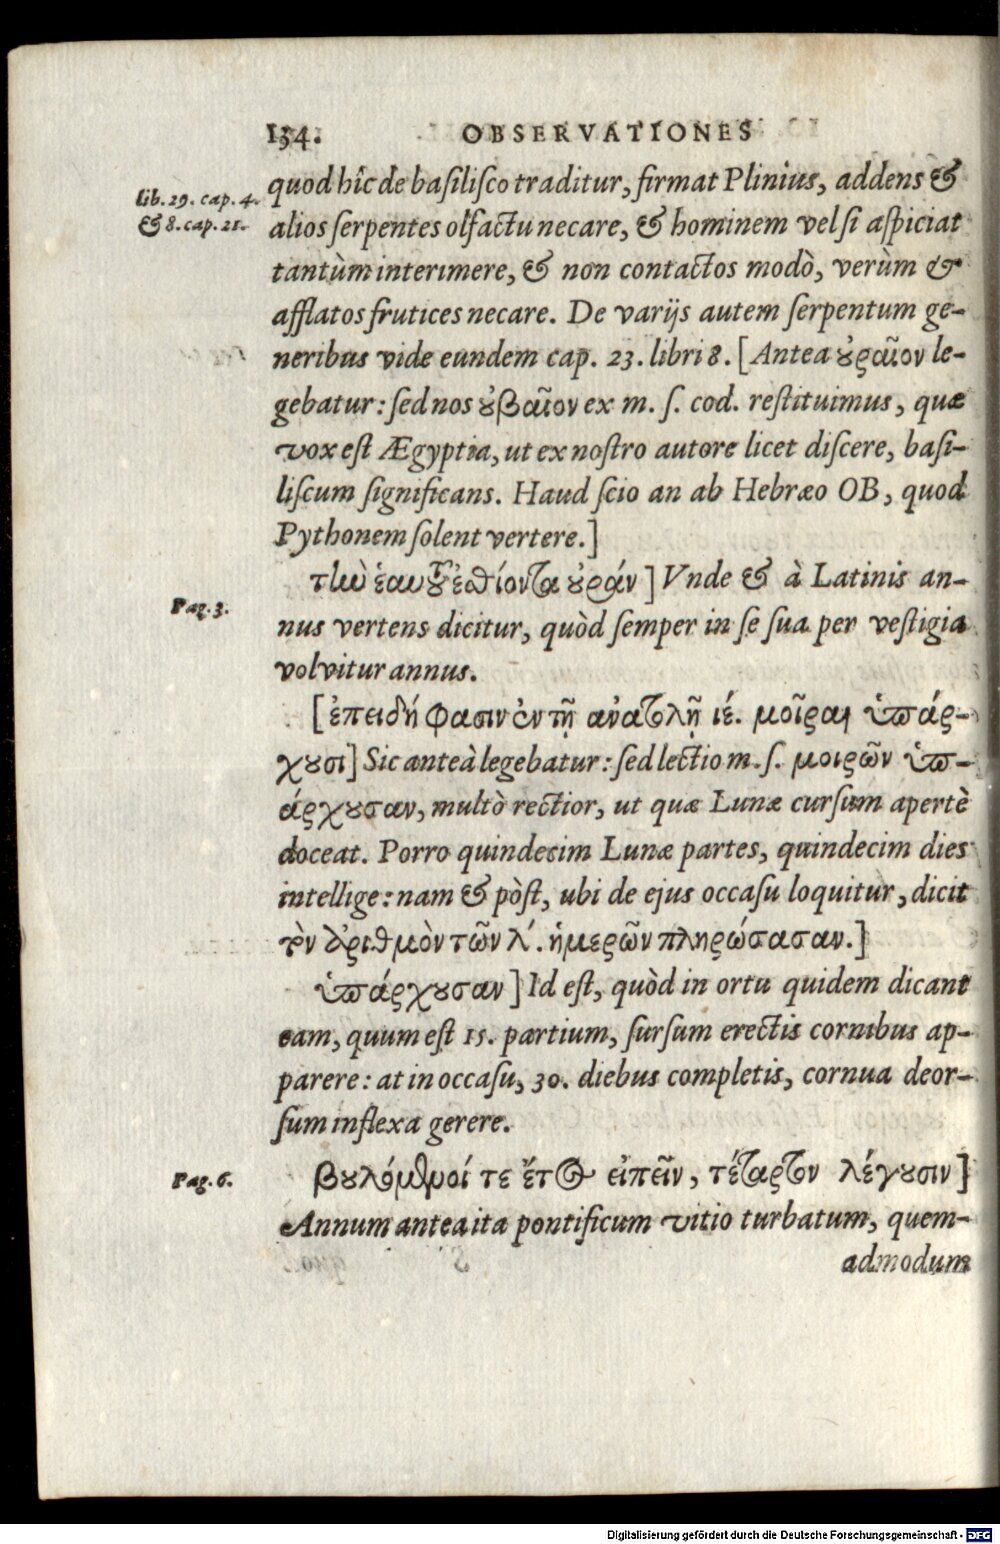 134.
OBSERVATIONES
lib. 29. cap. 4.
& 8. cap. 21.
quod hîc de basilisco traditur, firmat Plinius, addens &
alios serpentes olfactu necare, & hominem vel si aspiciat
tantùm interimere, & non contactos modò, verùm &
afflatos frutices necare. De varijs autem serpentum ge-
neribus vide eundem cap. 23. libri 8. [Antea οὐραῖον le-
gebatur: sed nos οὐβαῖον ex m. s. cod. restituimus, quæ
vox est Ægyptia, ut ex nostro autore licet discere, basi-
liscum significans. Haud scio an ab Hebræo OB, quod
Pythonem solent vertere.]
Pag. 3.
τὴν ἑαυτοῦ ἐσθίοντα οὐράν] Vnde & à Latinis an-
nus vertens dicitur, quòd semper in se sua per vestigia
volvitur annus.
[ἐπειδή φασιν ἐν τῇ ἀνατολῇ ιέ. μοῖραι ὑπάρ-
χουσι] Sic anteà legebatur: sed lectio m. s. μοιρῶν ὑπ-
άρχουσαν, multò rectior, ut quæ Lunæ cursum apertè
doceat. Porro quindecim Lunæ partes, quindecim dies
intellige: nam & pòst, ubi de ejus occasu loquitur, dicit
τὸν ἀριθμὸν τῶν λ΄. ἡμερῶν πληρώσασαν.]
ὑπάρχουσαν] Id est, quòd in ortu quidem dicant
eam, quum est 15. partium, sursum erectis cornibus ap-
parere: at in occasu, 30. diebus completis, cornua deor-
sum inflexa gerere.
Pag. 6.
βουλόμενοί τε ἔτος εἰπεῖν, τέταρτον λέγουσιν]
Annum antea ita pontificum vitio turbatum, quem-
admodum
Digitalisierung gefördert durch die Deutsche Forschungsgemeinschaft - DFG